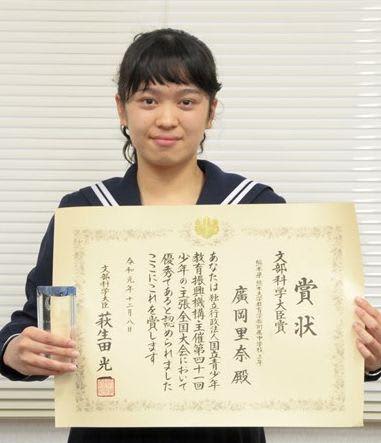 賞状
文部科学大臣賞
廣岡里奈殿
あなたは独立行政法人国立青少年
教育振興機構主催第四十一回
少年の主張全国大会において
優秀であると認められました
ここにこれを賞します
令和元年十二月八日
文部科学大臣 萩生田光一